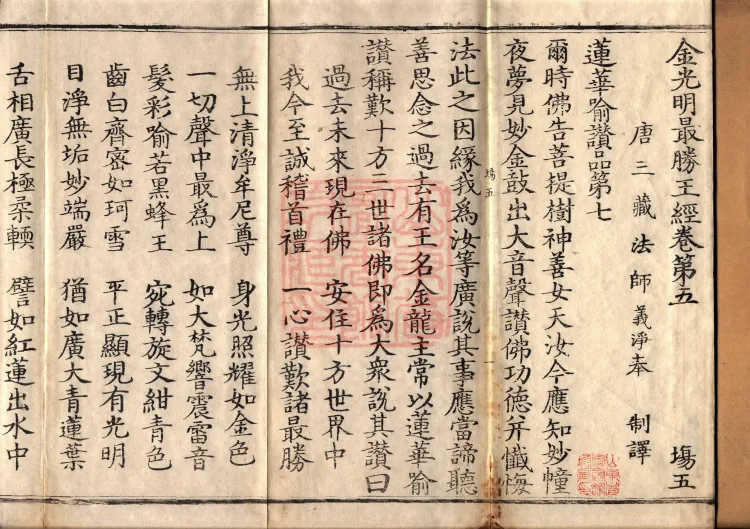 金光明最勝王經卷第五 塲五
唐三藏法師義淨奉 制譯
蓮華喻讚品第七
爾時佛告菩提樹神善女天汝今應知妙幢
夜夢見妙金鼓出大音聲讚佛功德并懺悔
塲五 一
法此之因緣我為汝等廣說其事應當諦聽
善思念之過去有王名金龍主常以蓮華喻
讚稱歎十方三世諸佛即為大衆說其讚曰
過去未來現在佛 安住十方世界中
我今至誠稽首禮 一心讚歎諸最勝
無上清淨牟尼尊 身光照耀如金色
一切聲中最為上 如大梵響震雷音
髮彩喻若黑蜂王 宛轉旋文紺青色
齒白齊密如珂雪 平正顯現有光明
目淨無垢妙端嚴 猶如廣大青蓮葉
舌相廣長極柔輭 譬如紅蓮出水中